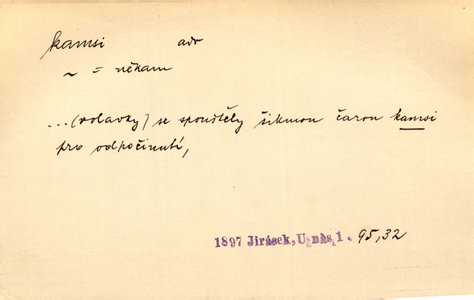 kamsi adv
~ = někam
...(volavky) se spouštěly šikmou čarou kamsi
pro odpočinutí,
1897 Jirásek, U nás 1. 95,32